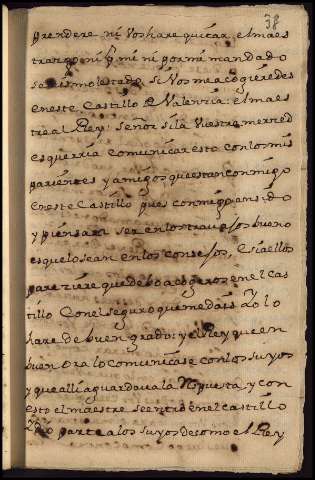 38
prendere ni vos hare quitar el maes
trazgo ni por mi ni por mi mandado
se mismo estado si vos me acogieredes
en este Castillo de Valencia: el maes
tre al Rey: señor si la Vuestra merned
es querria comunicar esto con los mis
parientes y amigos qui estan conmigo
en este Castillo pues conmigo an sido
y piensan ser en los travajos bueno
es que lo sean en los consejos, e si a ellos
pareziere que debo acogeros en el cas
tillo con el seguro que me dais yo lo
hare de buen grado: y el Rey que en
buen ora lo comunicase con los suyos
y que alli aguardava la Repuesta, y con
esto el maestre se entro en el castillo
y dio parte a los suyos de como el Rey